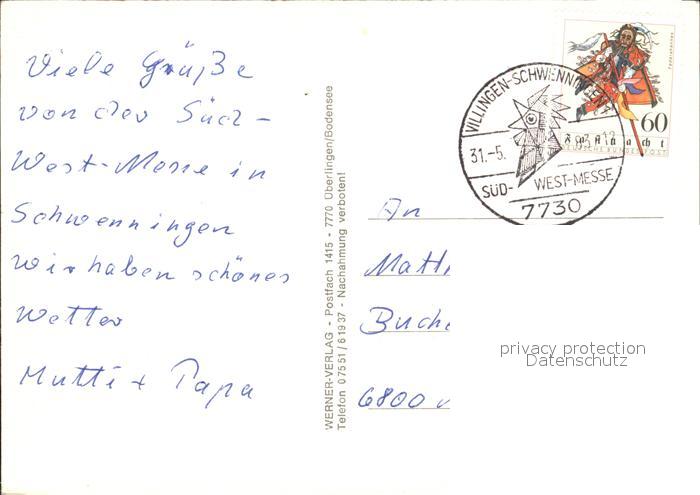 Viele Grüße
von der Süd-
West-Messe in
Schwenningen
wir haben schönes
Wetter
Mutti + Papa
WERNER-VERLAG - Postfach 1415 - 7770 Überlingen/Bodensee
Telefon 07551/61937 - Nachahmung verboten!
VILLINGEN-SCHWENNINGEN
31.-5.
SÜD- WEST-MESSE
7730
60
Fastnacht
DEUTSCHE BUNDESPOST
An
Matth
Buche
6800
privacy protection
Datenschutz